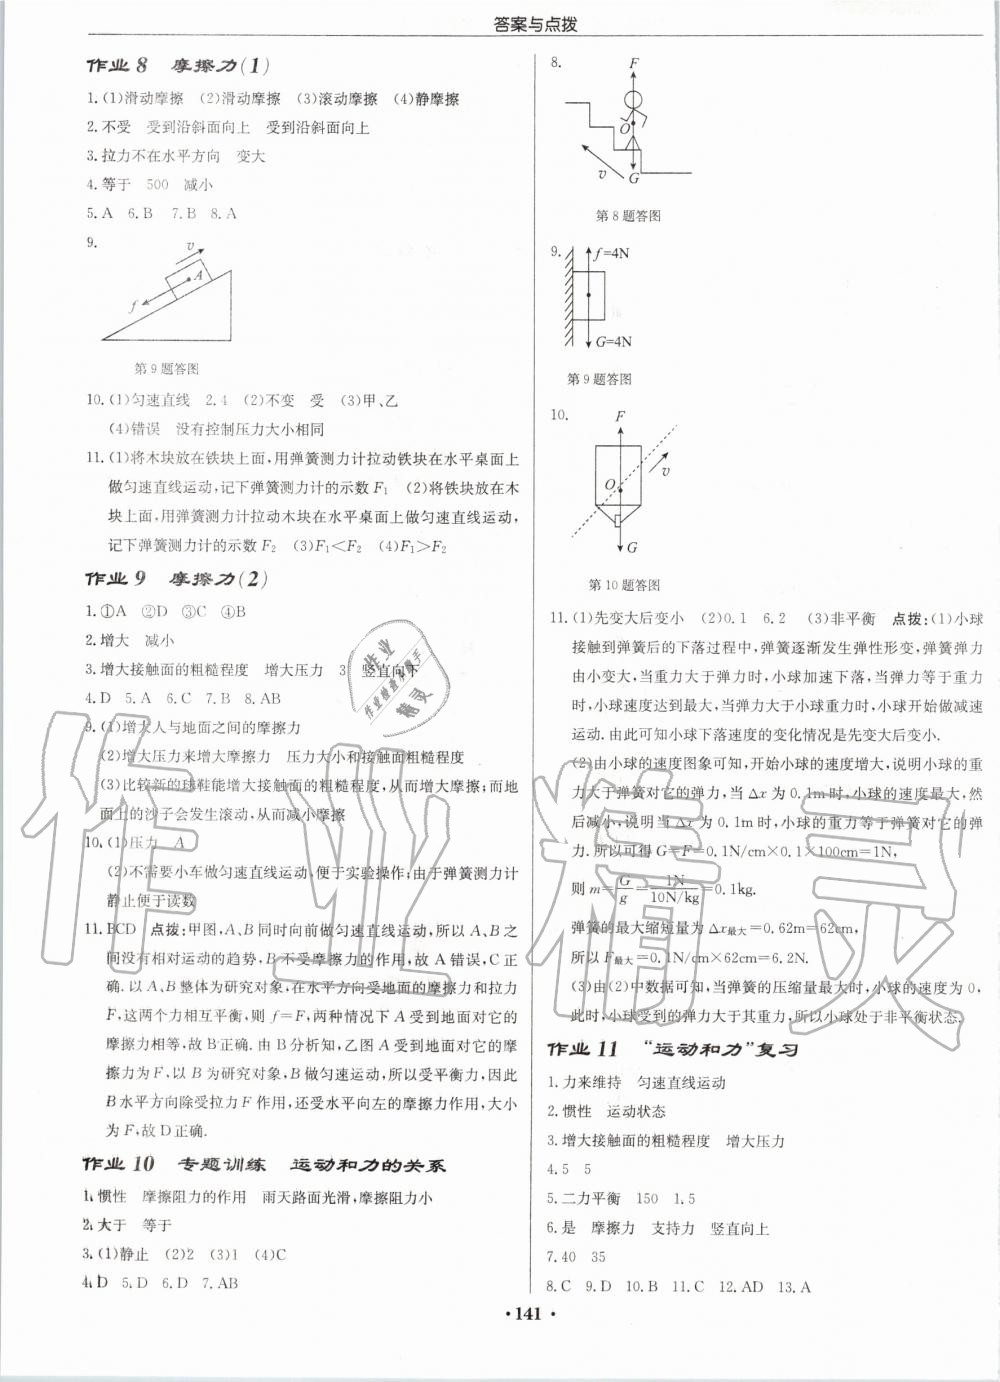 答案与点拨
作业8 摩擦力(1)
1.(1)滑动摩擦 (2)滑动摩擦 (3)滚动摩擦 (4)静摩擦
2.不受 受到沿斜面向上 受到沿斜面向上
3.拉力不在水平方向 变大
4.等于 500 减小
5.A 6.B 7.B 8.A
9.
v
A
f
第9题答图
10.(1)匀速直线 2.4 (2)不变 受 (3)甲、乙
(4)错误 没有控制压力大小相同
11.(1)将木块放在铁块上面,用弹簧测力计拉动铁块在水平桌面上
做匀速直线运动,记下弹簧测力计的示数F₁ (2)将铁块放在木
块上面,用弹簧测力计拉动木块在水平桌面上做匀速直线运动,
记下弹簧测力计的示数F₂ (3)F₁<F₂ (4)F₁>F₂
作业9 摩擦力(2)
1.①A ②D ③C ④B
2.增大 减小
3.增大接触面的粗糙程度 增大压力 3 竖直向下
4.D 5.A 6.C 7.B 8.AB
9.(1)增大人与地面之间的摩擦力
(2)增大压力来增大摩擦力 压力大小和接触面粗糙程度
(3)比较新的球鞋能增大接触面的粗糙程度,从而增大摩擦;而地
面上的沙子会发生滚动,从而减小摩擦
10.(1)压力 A
(2)不需要小车做匀速直线运动,便于实验操作;由于弹簧测力计
静止便于读数
11.BCD 点拨:甲图,A、B同时向前做匀速直线运动,所以A、B之
间没有相对运动的趋势,B不受摩擦力的作用,故A错误,C正
确.以A、B整体为研究对象,在水平方向受地面的摩擦力和拉力
F,这两个力相互平衡,则f=F,两种情况下A受到地面对它的
摩擦力相等,故B正确.由B分析知,乙图A受到地面对它的摩擦
力为F,以B为研究对象,B做匀速运动,所以受平衡力,因此
B水平方向除受拉力F作用,还受水平向左的摩擦力作用,大小
为F,故D正确.
作业10 专题训练 运动和力的关系
1.惯性 摩擦阻力的作用 雨天路面光滑,摩擦阻力小
2.大于 等于
3.(1)静止 (2)2 (3)1 (4)C
4.D 5.D 6.D 7.AB
8.
F
O
v
G
第8题答图
9.
f=4N
G=4N
第9题答图
10.
F
O
v
G
第10题答图
11.(1)先变大后变小 (2)0.1 6.2 (3)非平衡 点拨:(1)小球
接触到弹簧后的下落过程中,弹簧逐渐发生弹性形变,弹簧弹力
由小变大,当重力大于弹力时,小球加速下落,当弹力等于重力
时,小球速度达到最大,当弹力大于小球重力时,小球开始做减速
运动.由此可知小球下落速度的变化情况是先变大后变小.
(2)由小球的速度图象可知,开始小球的速度增大,说明小球的重
力大于弹簧对它的弹力,当Δx为0.1m时,小球的速度最大,然
后减小,说明当Δx为0.1m时,小球的重力等于弹簧对它的弹
力.所以可得G=F=0.1N/cm×0.1×100cm=1N,
则m=G/g=1N/10N/kg=0.1kg.
弹簧的最大缩短量为Δx最大=0.62m=62cm,
所以F最大=0.1N/cm×62cm=6.2N.
(3)由(2)中数据可知,当弹簧的压缩量最大时,小球的速度为0,
此时,小球受到的弹力大于其重力,所以小球处于非平衡状态.
作业11 “运动和力”复习
1.力来维持 匀速直线运动
2.惯性 运动状态
3.增大接触面的粗糙程度 增大压力
4.5 5
5.二力平衡 150 1.5
6.是 摩擦力 支持力 竖直向上
7.40 35
8.C 9.D 10.B 11.C 12.AD 13.A
·141·
作业精灵